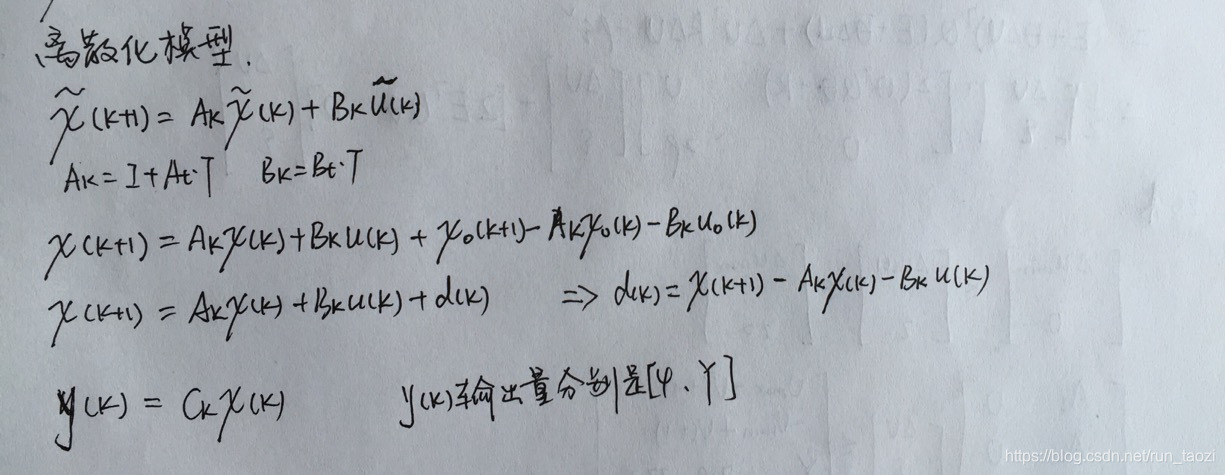 离散化模型.
x̃(k+1) = Akx̃(k) + Bkũ(k)
Ak = I + At·T  Bk = Bt·T
x(k+1) = Akx(k) + Bku(k) + x₀(k+1) - Akx₀(k) - Bku₀(k)
x(k+1) = Akx(k) + Bku(k) + d(k)  => d(k) = x(k+1) - Akx(k) - Bku(k)
y(k) = Ckx(k)  y(k)输出量分别是[φ、Y]
https://blog.csdn.net/run_taozi